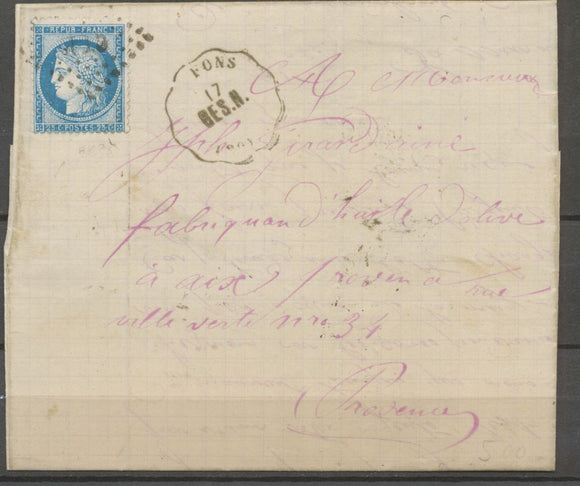 REPUB. FRANC.
25 C. POSTES 25 C.
FONS
17
BES.N.
A Monsieur
Jph Girard
fabriquand d'huile d'olive
à aix provence rue
ville verte nro 34
Provence
500